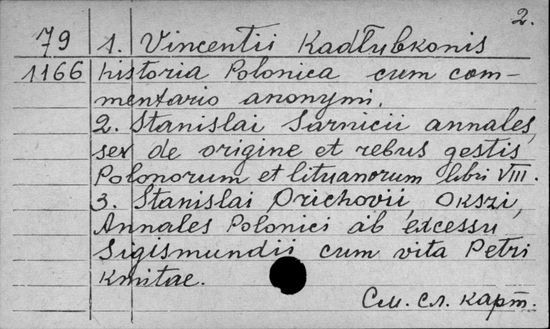 2.
79 1. Vincentii Kadłubkonis
1166 historia Polonica cum com-
mentario anonymi.
2. Stanislai Sarnicii annales,
sex de origine et rebus gestis
Polonorum et lituanorum libri VIII.
3. Stanislai Orichovii, Okszi,
Annales Polonici ab excessu
Sigismundii cum vita Petri
Kmitae.
См. сл. карт.